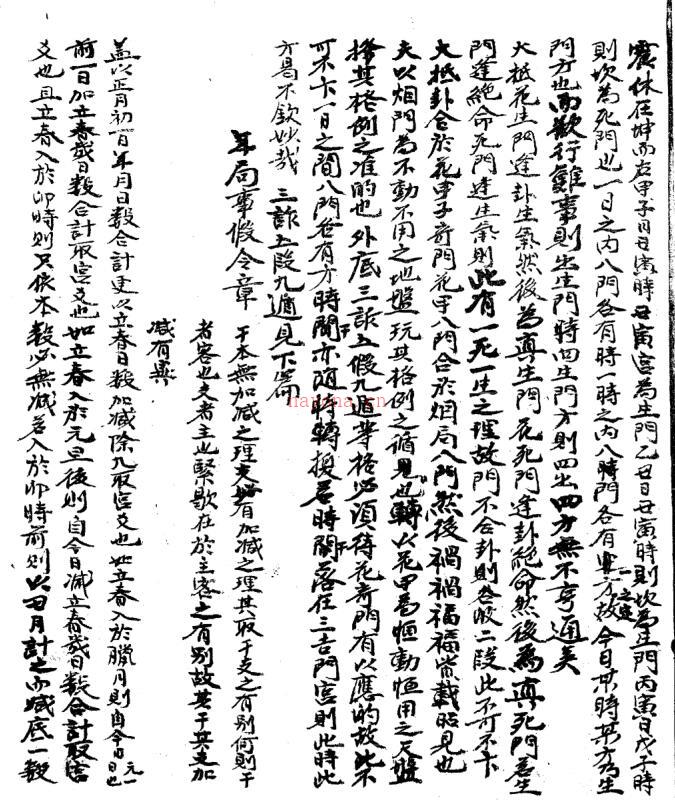 震休在坤而右甲子日丑寅時丑寅宮為生門乙丑日丑寅時則坎為生門丙寅日戊子時
則坎為死門也一日之內八門各有時一時之內八時門各有定方故今日某時某方為生
門方也而欲行難事則出生門時四生門方則四出四方無不亨通矣
大抵花生門逢卦生氣然後為真生門花死門逢卦絕命然後為真死門若生
門逢絕命死門逢生氣則此有一死一生之理故門不合卦則吞吸二段此不可不卞
大抵卦合於花甲子奇門花甲八門合於烟局八門然後禍禍福福常載昭見也
夫以烟門為不動不用之地盤玩其格例之循見也轉以花甲為恒動恒用之天盤
撥其格例之准的也外底三詐五假九遁等格必須待花奇門有以應的故此不
可不卞一日之間八門各有方時開亦隨時轉換若時開落在三吉門宮則此時此
方曷不欽妙哉 三詐五段九遁見下篇
年局事假令章
干本無加減之理支必有加減之理其取干支之有別何則干
者客也支者主也緊歇在於主客之有別故其干其支加
減有異
蓋以正月初一日年月日數合計更以立春日數加減除九取宮爻也如立春入於臘月則自今日元一日也
前一日加立春歲日數合計取宮爻也如立春入於元旦後則自今日減立春歲日數合計取宮
爻也且立春入於卯時則只依本數必無減若入於卯時前則以丑月計之而減底一數
haoguha.cn